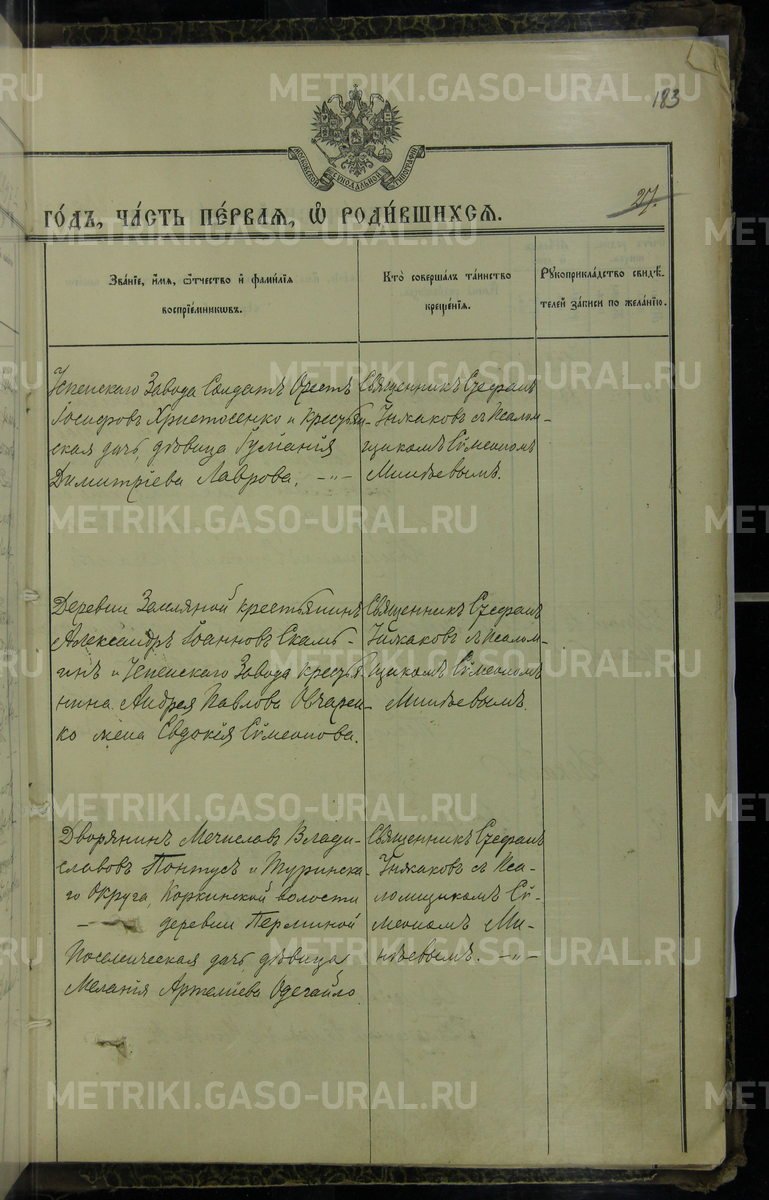 METRIKI.GASO-URAL.RU
183
МОСКОВСКОЙ СѴНОДАЛЬНОЙ ТИПОГРАФІИ
27.
ГО́ДЪ, ЧА́СТЬ ПЕ́РВАЯ, Ѡ҆ РОДИ́ВШИХСЯ.
Зва́нїе, и҆́мя, ѻ҆́тчество и҆ фами́лїя
воспрїе́мниковъ.
Кто̀ соверша́лъ та́инство
креще́нїя.
Рꙋкоприкла́дство свидѣ́-
телей за́писи по жела́нїю.
Успенскаго Завода Солдатъ Орестъ
Іосифовъ Христосенко и крестьян-
ская дочь, дѣвица Іуліанія
Димитріева Лаврова. -"-
Священникъ Стефанъ
съ Псалом-
щикомъ Сѵмеономъ
Минѣевымъ.
Деревни Земляной крестьянинъ
Александръ Іоанновъ Скаль-
гинъ и Успенскаго Завода крестья-
нина Андрея Павлова Овчарен-
ко жена Евдокія Сѵмеонова.
Священникъ Стефанъ
съ Псалом-
щикомъ Сѵмеономъ
Минѣевымъ.
Дворянинъ Мечиславъ Влади-
славовъ Понтусъ и Туринска-
го Округа, Коркинской волости
деревни Перминой
Поселенческая дочь, дѣвица
Меланія Артеміева
Священникъ Стефанъ
съ Пса-
ломщикомъ Сѵ-
меономъ Ми-
нѣевымъ. -"-